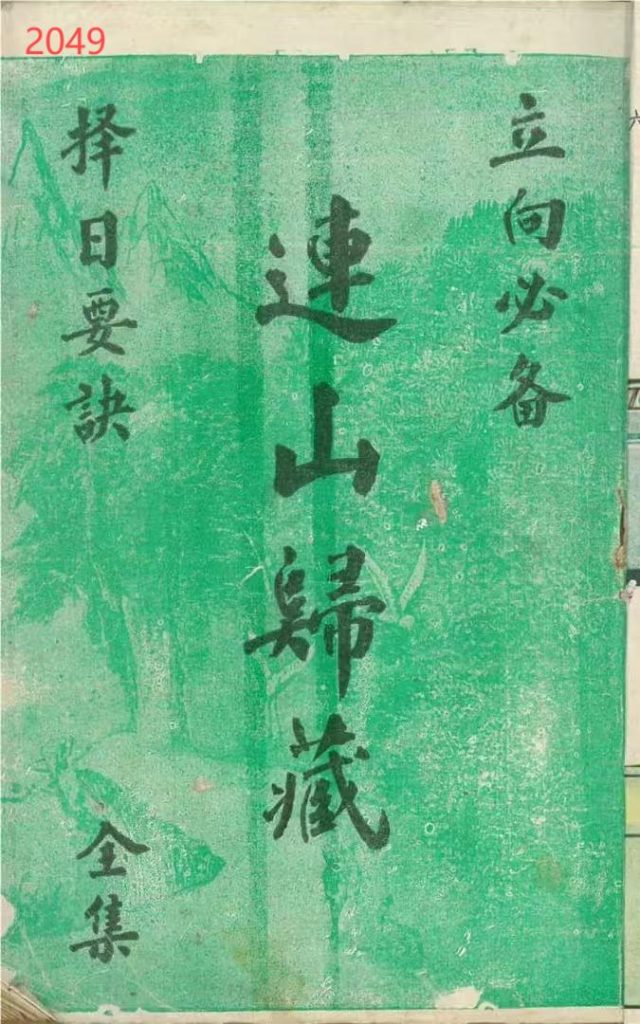 2049
立向必备
連山歸藏
择日要訣
全集